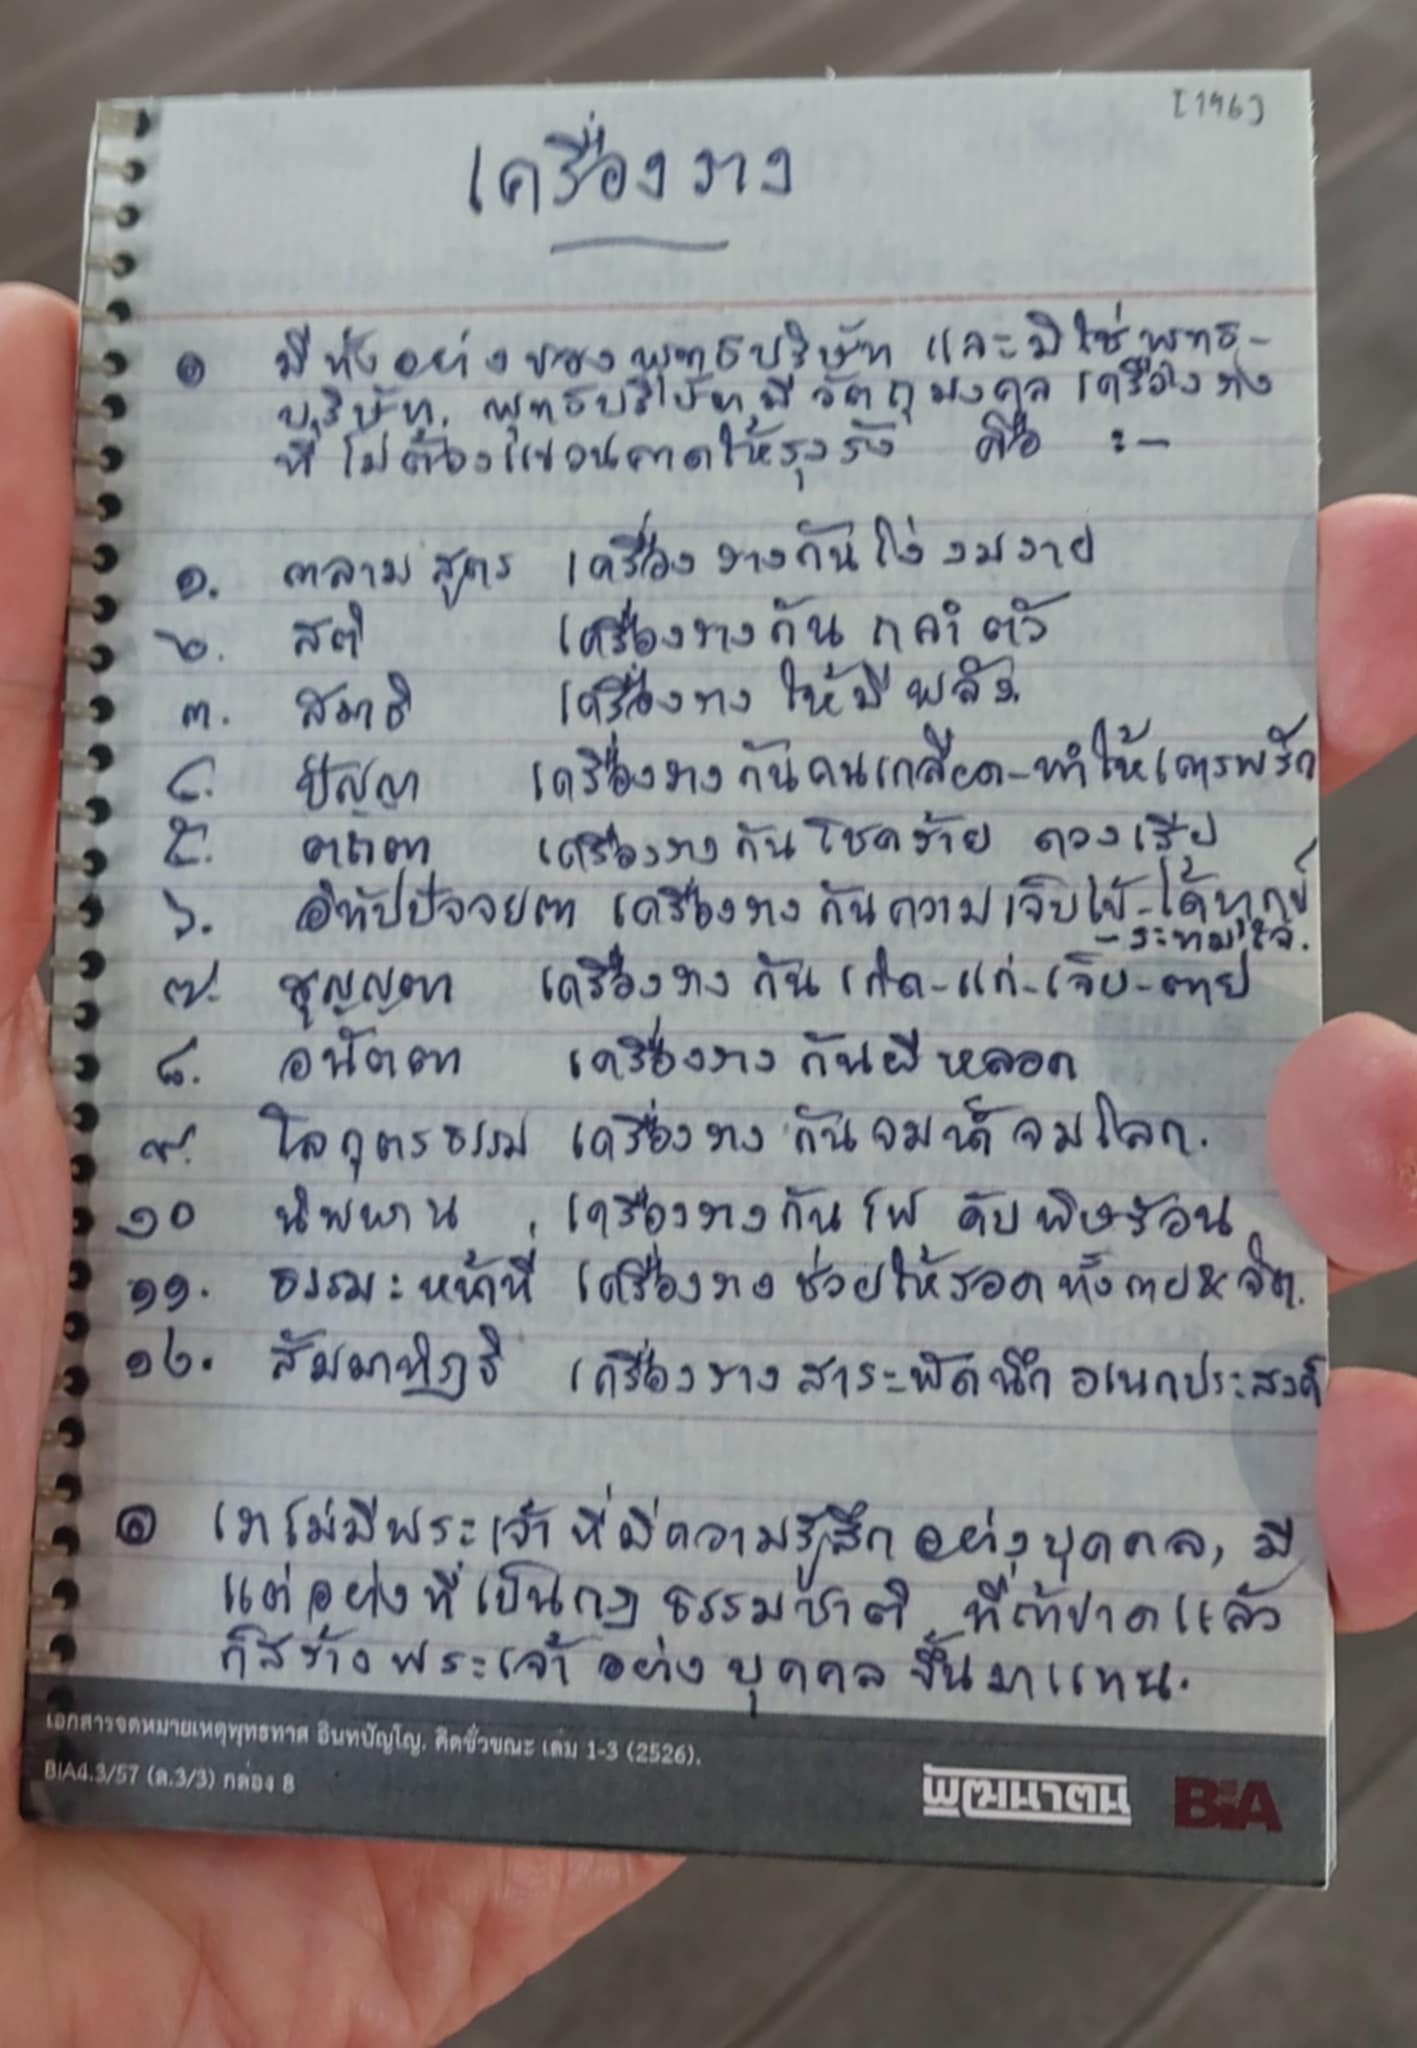 [196]
เครื่องราง
๑ มีทั้งอย่างของพุทธบริษัท และมิใช่พุทธ-
บริษัท. พุทธบริษัทมีวัตถุมงคล เครื่องราง
ที่ไม่ต้องแขวนคาดให้รุงรัง คือ :-
๑. กาลามสูตร เครื่องรางกันโง่งมงาย
๒. สติ เครื่องรางกัน
๓. สมาธิ เครื่องราง ให้มีพลัง.
๔. ปัญญา เครื่องรางกันคนเกลียด-ทำให้เคารพรัก
๕. ตถาตา เครื่องรางกันโชคร้าย ดวงเสีย
๖. อิทัปปัจจยตา เครื่องรางกันความเจ็บไข้-ได้ทุกข์
-ระทมใจ.
๗. สุญญตา เครื่องรางกันเกิด-แก่-เจ็บ-ตาย
๘. อนัตตา เครื่องรางกันผีหลอก
๙. โลกุตรธรรม เครื่องรางกันจมน้ำจมโลก.
๑๐ นิพพาน เครื่องรางกันไฟ ดับพิษร้อน
๑๑. ธรรมะหน้าที่ เครื่องรางช่วยให้รอดทั้งกาย&จิต.
๑๒. สัมมาทิฏฐิ เครื่องรางสาระพัดนึก อเนกประสงค์
๑ เราไม่มีพระเจ้าที่มีความรู้สึกอย่างบุคคล, มี
แต่อย่างที่เป็นกฎธรรมชาติ ที่ถ้าขาดแล้ว
ก็สร้างพระเจ้าอย่างบุคคลขึ้นมาแทน.
เอกสารจดหมายเหตุพุทธทาส อินทปัญโญ. คิดชั่วขณะ เล่ม 1-3 (2526).
BIA4.3/57 (ล.3/3) กล่อง 8
พัฒนาตน
BIA